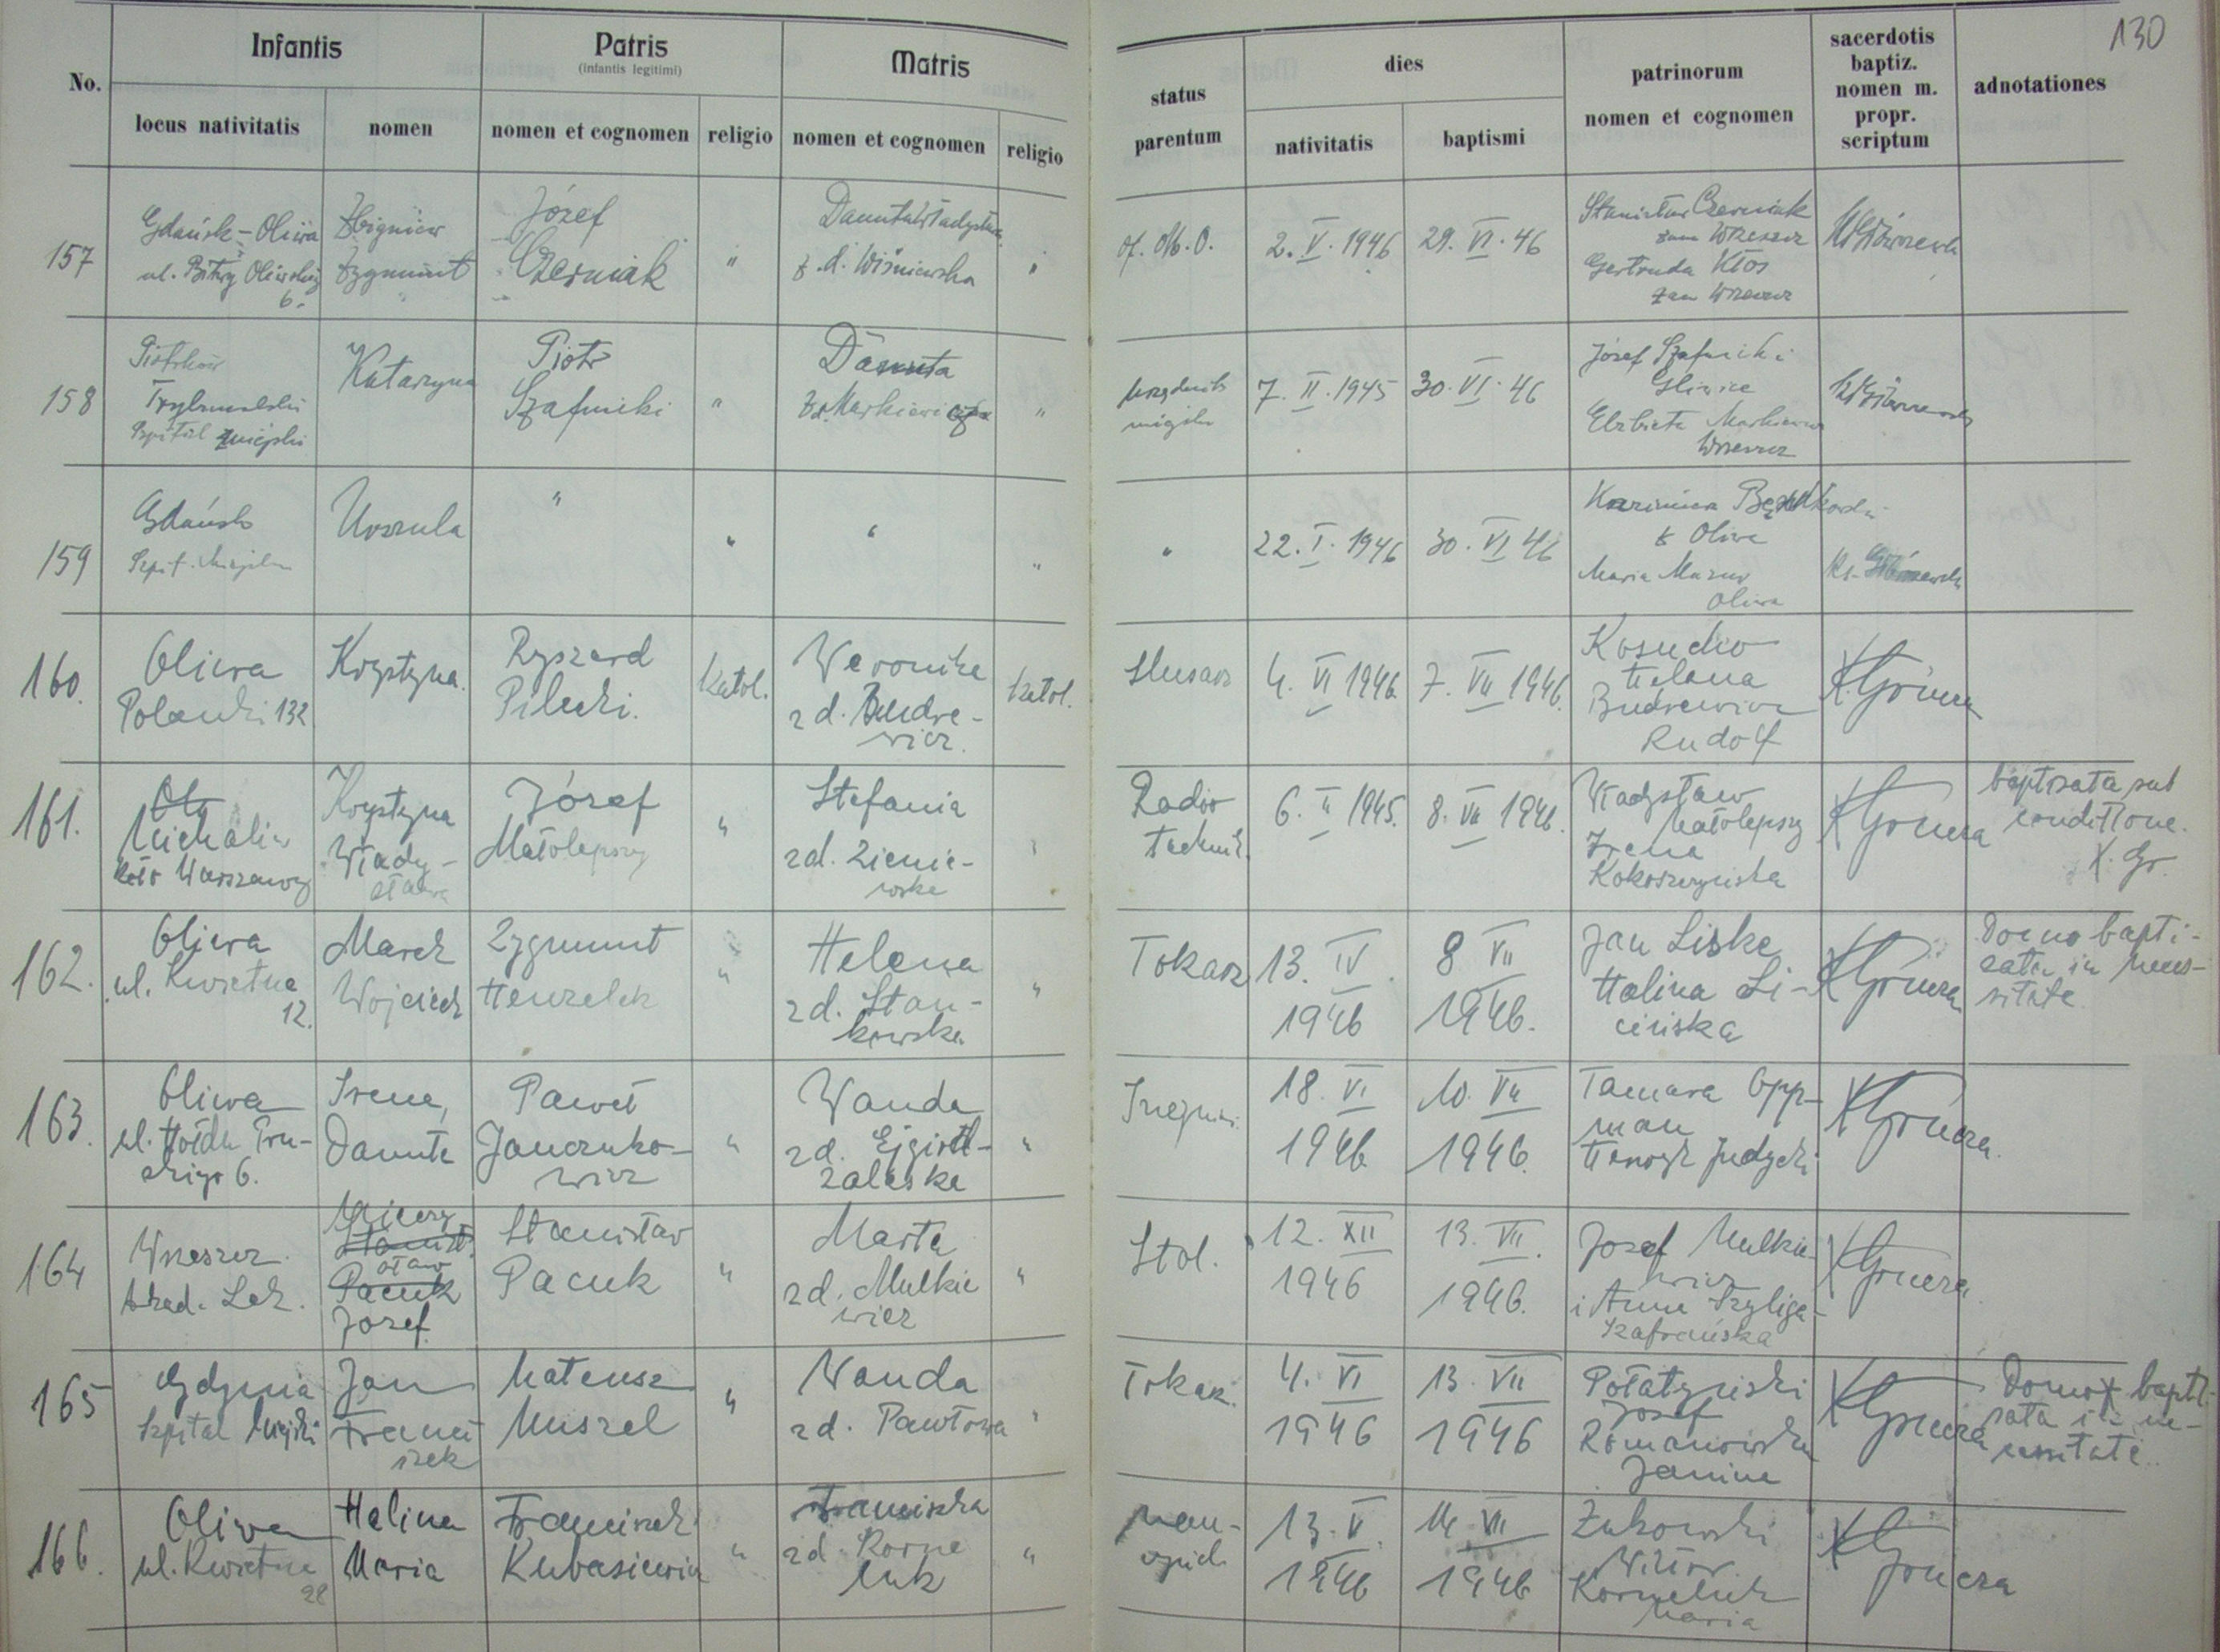 130
No.
Infantis
locus nativitatis
nomen
Patris
(infantis legitimi)
nomen et cognomen
religio
Matris
nomen et cognomen
religio
status
parentum
dies
nativitatis
baptismi
patrinorum
nomen et cognomen
sacerdotis
baptiz.
nomen m.
propr.
scriptum
adnotationes
157
Gdańsk-Oliwa
ul. Bitwy Oliwskiej
6.
Zbigniew
Zygmunt
Józef
Czerniak
"
Danuta Władysława
z d. Wiśniewska
"
2. V. 1946
29. VI. 46
Stanisław Czerniak
zam Wrzeszcz
Gertruda Kłos
zam Wrzeszcz
158
Piotrków
Trybunalski
Szpital miejski
Katarzyna
Piotr
Szafnicki
"
Danuta
"
7. II. 1945
30. VI. 46
Józef Szafnicki
Gliwice
Elżbieta
Wrzeszcz
159
Gdańsk
Szpit. Miejski
Urszula
"
"
"
"
"
22. I. 1946
30. VI 46
z Oliwa
Maria Mazur
Oliwa
160.
Oliwa
Polanki 132
Krystyna.
Ryszard
Pilecki.
katol.
Weronika
z d. Budre-
wicz.
katol.
Ślusarz
4. VI 1946
7. VII 1946.
Helena
Budrewicz
Rudolf
X Grucza
161.
Michalin
koło Warszawy
Krystyna
Włady-
sława
Józef
Małolepszy
"
Stefania
zd. Zienie-
wska
"
Radio
technik.
6. II 1945.
8. VII 1946.
Władysław
Małolepszy
Irena
Kokoszczyńska
X Grucza
baptisata sub
conditione.
X. Gr.
162.
Oliwa
ul. Kwietna
12.
Marek
Wojciech
Zygmunt
Henzelek
"
Helena
zd. Stan-
kowska
"
Tokarz
13. IV
1946
8 VII
1946.
Jan Liske
Halina Li-
cińska
X Grucza
Domo bapti-
zatu in neces-
sitate
163.
Oliwa
ul. Hołdu Pru-
skiego 6.
Irena,
Danuta
Paweł
Janczuko-
wicz
"
Wanda
zd.
Zaleska
"
18. VI
1946
10. VII
1946.
Tamara Opp-
man
Henryk Judycki
X Grucza.
164
Wrzeszcz
Akad. Lek.
Mieczy
Stanisł.
sław
Pacuk
Józef
Stanisław
Pacuk
"
Marta
zd. Mulkie
wicz
"
Stol.
12. XII
1946
13. VII.
1946.
Józef Mulkie-
wicz
i Anna Szyliga-
Szafrańska
X Grucza
165
Gdynia
Szpital Miejski
Jan
Franci
szek
Mateusz
Muszel
"
Wanda
zd. Pawłowa
"
Tokarz.
4. VI
1946
13. VII
1946
Połatyński
Józef
Romanowska
Janina
X Grucza
Domo bapti-
sata in ne-
cessitate.
166.
Oliwa
ul. Kwietna
28
Halina
Maria
Franciszek
Kubasiewicz
"
Franciszka
zd. Korne
luk
"
13. V.
1946
14. VII
1946
Żukowski
Wiktor
Korneluk
Maria
X Grucza